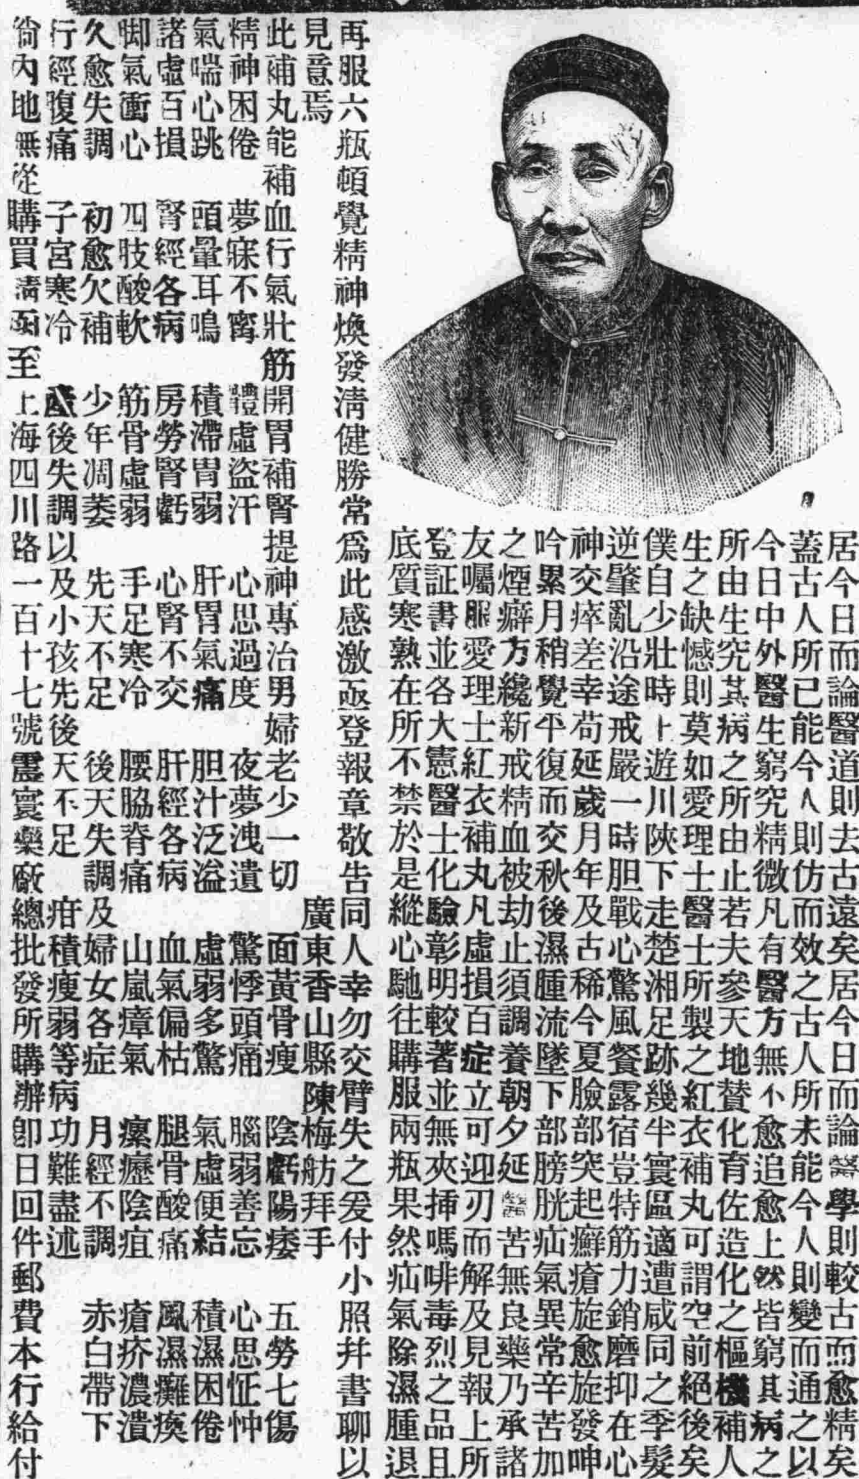 居今日而論醫道則去古遠矣居今日而論醫學則較古而愈精矣
蓋古人所已能今人則仿而效之古人所未能今人則變而通之以
今日中外醫生窮究精微凡有醫方無不愈追愈上然皆窮其病之
所由生究其病之所由止若夫參天地賛化育佐造化之樞機補人
生之缺憾則莫如愛理士醫士所製之紅衣補丸可謂空前絕後矣
僕自少壯時上遊川陝下走楚湘足跡幾半寰區適遭咸同之季髮
逆肇亂沿途戒嚴一時胆戰心驚風餐露宿豈特筋力銷磨抑在心
神交瘁差幸苟延歲月年及古稀今夏臉部突起癬瘡旋愈旋發呻
吟累月稍覺平復而交秋後濕腫流墜下部膀胱疝氣異常辛苦加
之煙癖方纔新戒精血被劫止須調養朝夕延醫苦無良藥乃承諸
友囑服愛理士紅衣補丸凡虛損百症立可迎刃而解及見報上所
登証書並各大憲醫士化驗彰明較著並無夾揷嗎啡毒烈之品且
底質寒熟在所不禁於是縱心馳往購服兩瓶果然疝氣除濕腫退
再服六瓶頓覺精神煥發淸健勝常爲此感激亟登報章敬告同人幸勿交臂失之爰付小照幷書聊以
見意焉　廣東香山縣陳梅舫拜手
此補丸能補血行氣壯筋開胃補腎提神專治男婦老少一切　面黃骨瘦　陰虧陽痿　五勞七傷
精神困倦　夢寐不甯　體虛盜汗　心思過度　夜夢洩遺　驚悸頭痛　腦弱善忘　心思怔忡
氣喘心跳　頭暈耳鳴　積滯胃弱　肝胃氣痛　胆汁泛溢　虛弱多驚　氣虛便結　積濕困倦
諸虛百損　腎經各病　房勞腎虧　心腎不交　肝經各病　血氣偏枯　腿骨酸痛　風濕癱瘓
脚氣衝心　四肢酸軟　筋骨虛弱　手足寒冷　腰脇脊痛　山嵐瘴氣　瘰癧陰疽　瘡疥濃潰
久愈失調　初愈欠補　少年凋萎　先天不足　後天失調及婦女各症　月經不調　赤白帶下
行經腹痛　子宮寒冷　產後失調以及小孩先後天不足　疳積瘦弱等病功難盡述
倘內地無從購買請函至上海四川路一百十七號震寰藥廠總批發所購辦卽日回件郵費本行給付